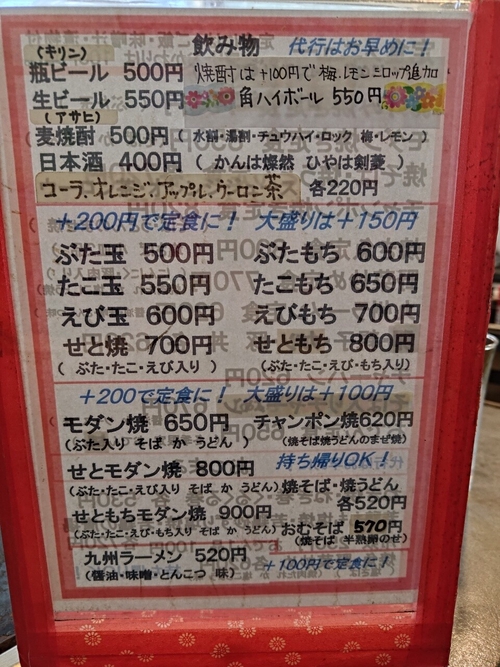 飲み物　代行はお早めに！
(キリン)
瓶ビール 500円 焼酎は+100円で梅、レモンシロップ追加
生ビール 550円 角ハイボール 550円
(アサヒ)
麦焼酎 500円 (水割・湯割・チュウハイ・ロック 梅・レモン)
日本酒 400円 (かんは燦然 ひやは剣菱)
コーラ、オレンジ、アップル、ウーロン茶 各220円
+200円で定食に！ 大盛りは+150円
ぶた玉 500円 ぶたもち 600円
たこ玉 550円 たこもち 650円
えび玉 600円 えびもち 700円
せと焼 700円 せともち 800円
(ぶた・たこ・えび入り) (ぶた・たこ・えび・もち入り)
+200で定食に！ 大盛りは+100円
モダン焼 650円 チャンポン焼620円
(ぶた入り そば か うどん) (焼そば焼うどんのまぜ焼)
持ち帰りOK！
せとモダン焼 800円
(ぶた・たこ・えび入り そば か うどん) 焼そば・焼うどん
各520円
せともちモダン焼 900円
(ぶた・たこ・えび・もち入り そば か うどん) おむそば 570円
(焼そば 半熟卵のせ)
九州ラーメン 520円
(醤油・味噌・とんこつ 味) +100円で定食に！